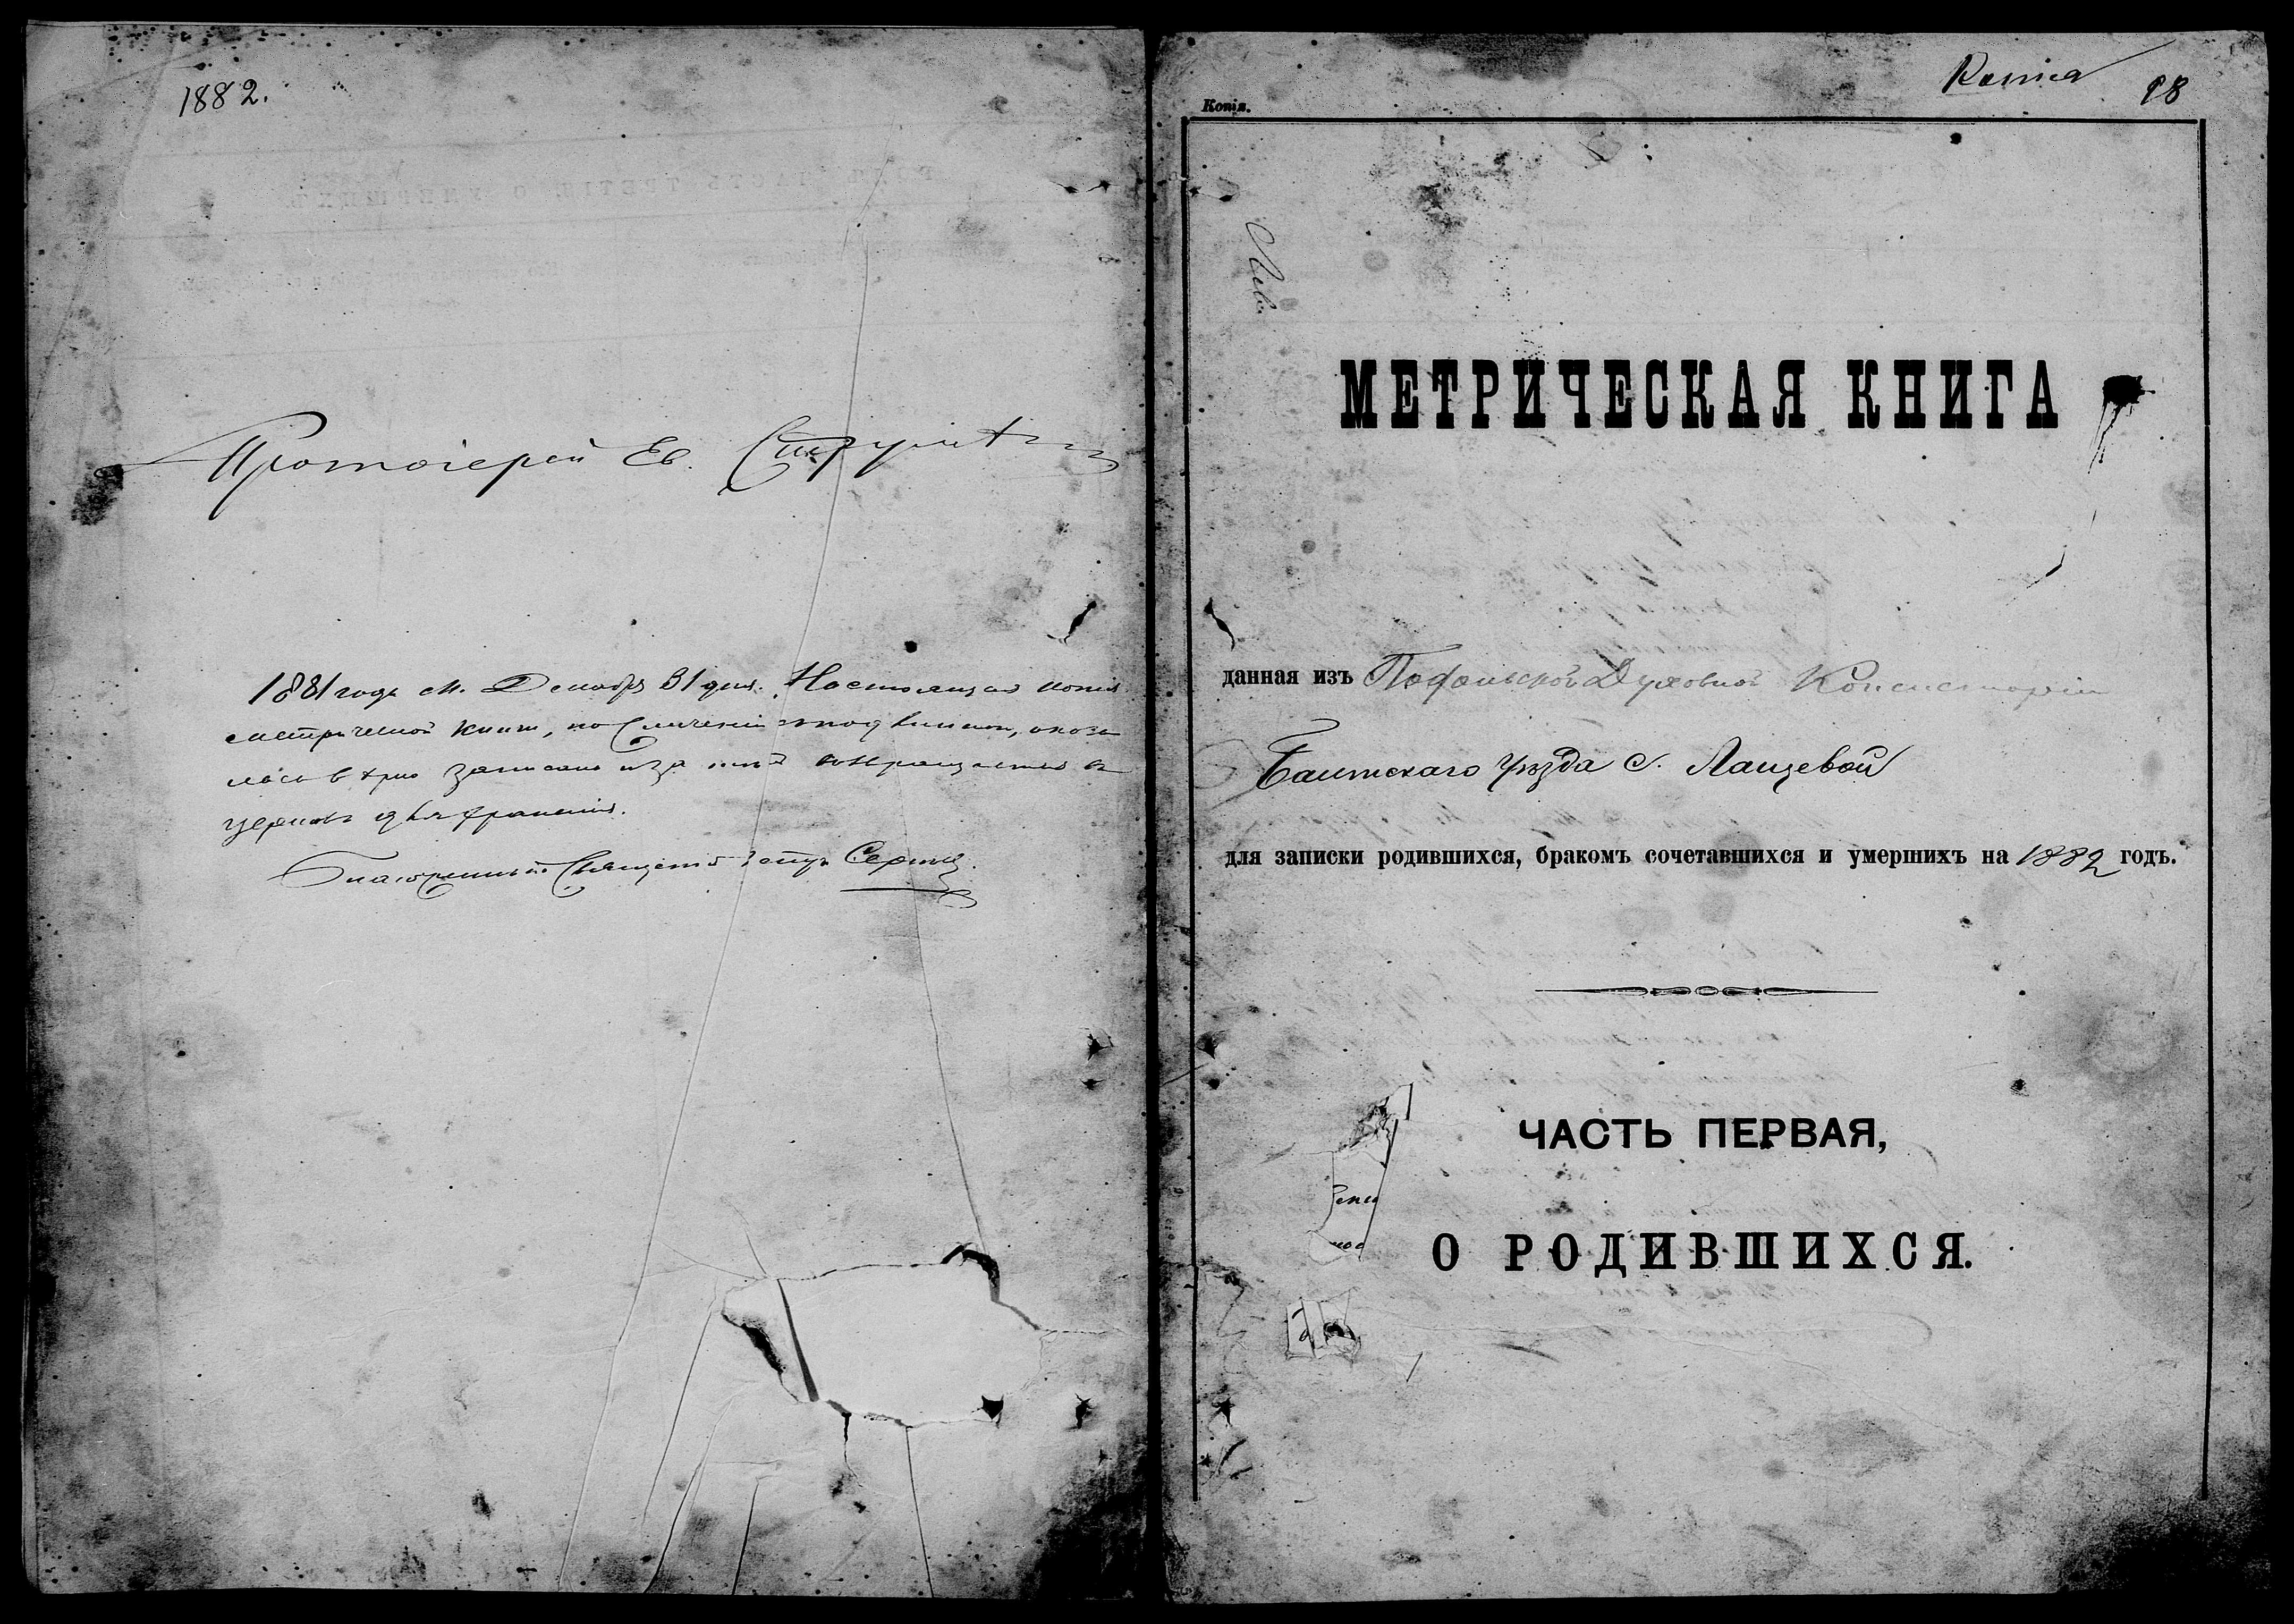 1882.
Протоіерей Ев.
1881 года м. Декабря 31 дня. Настоящая копія
метрической книги, по сличеніи съ подлинною, оказа
лась вѣрно записана и за
церковь для храненія.
Благочинный Священникъ Петръ
Копія
98
Копія.
МЕТРИЧЕСКАЯ КНИГА
данная изъ Подольской Духовной Консисторіи
Балтскаго уѣзда с. Лащевой
для записки родившихся, бракомъ сочетавшихся и умершихъ на 1882 годъ.
ЧАСТЬ ПЕРВАЯ,
О РОДИВШИХСЯ.